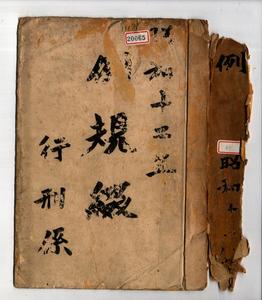 20065
昭和十二年
例規綴
行刑係
例
昭和十